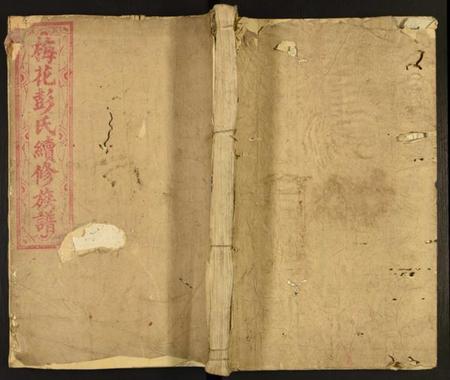 梅花彭氏續修族譜